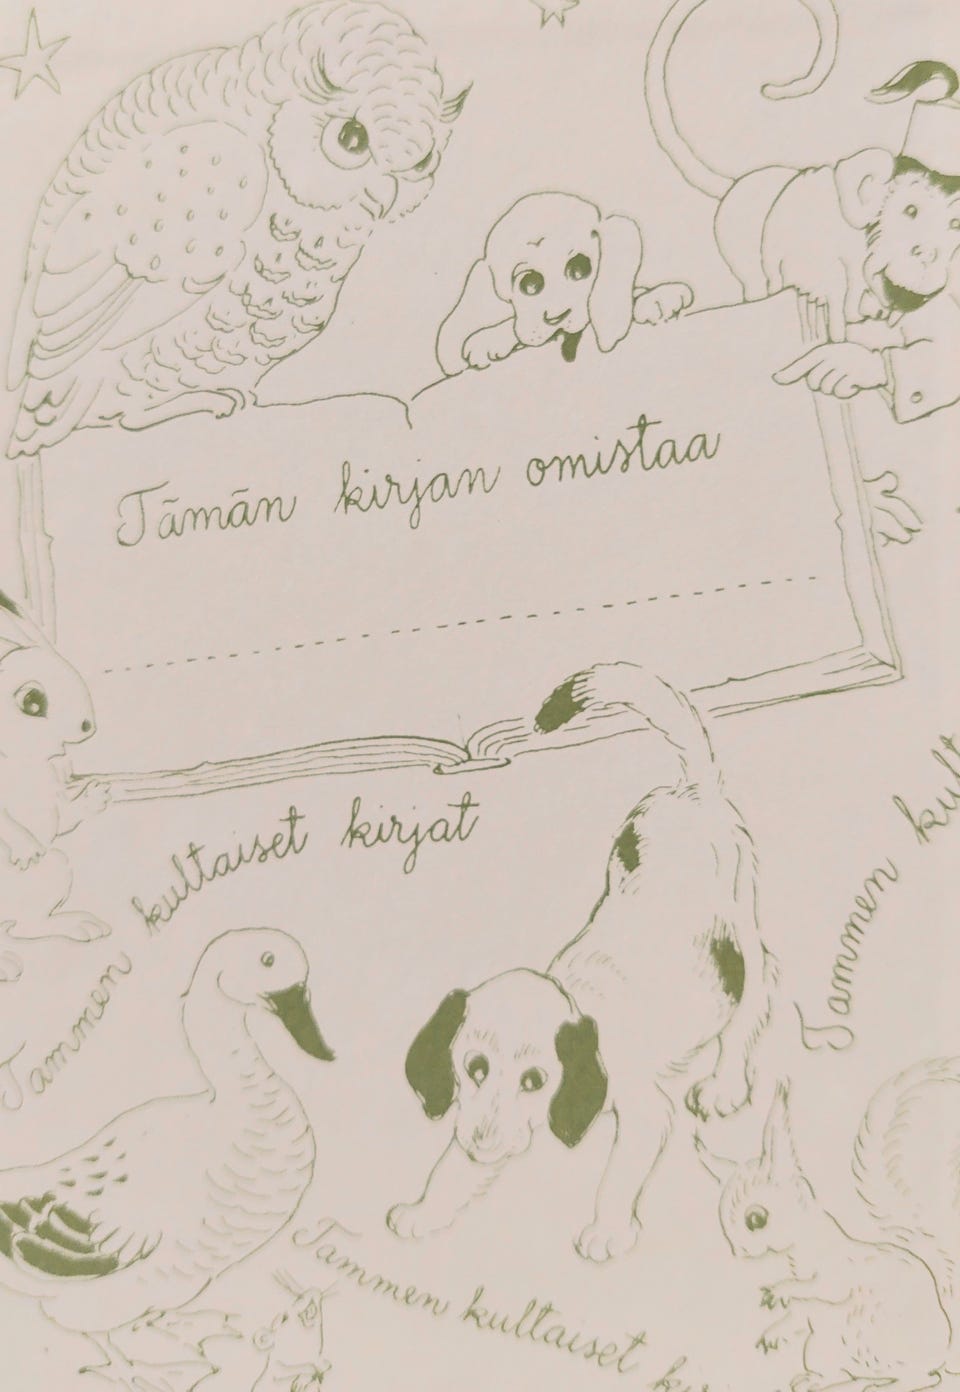 Tämän kirjan omistaa
Tammen kultaiset kirjat
Tammen
Tammen kultaiset